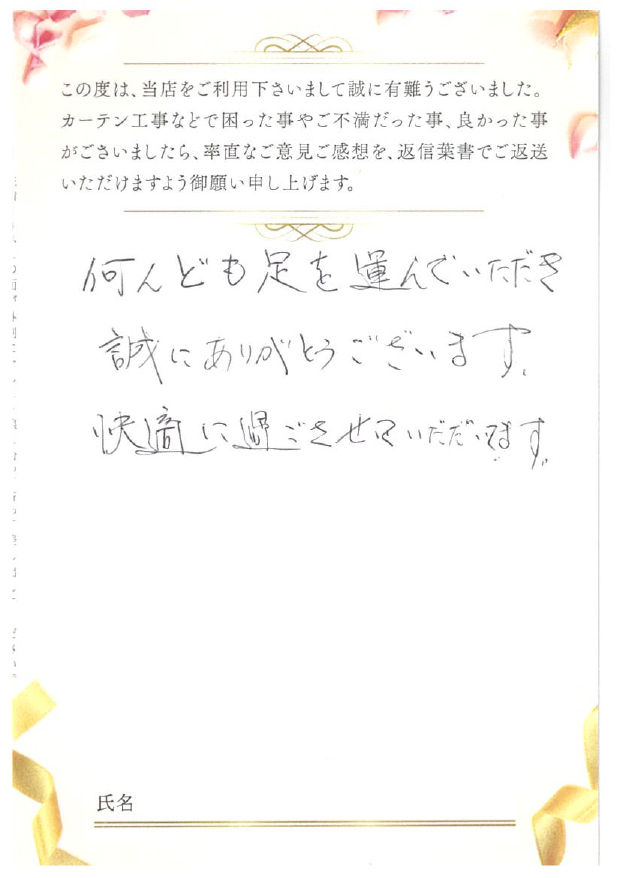 この度は、当店をご利用下さいまして誠に有難うございました。
カーテン工事などで困った事やご不満だった事、良かった事
がございましたら、率直なご意見ご感想を、返信葉書でご返送
いただけますよう御願い申し上げます。
何んども足を運んでいただき
誠にありがとうございます。
快適に過ごさせていただいてます。
氏名